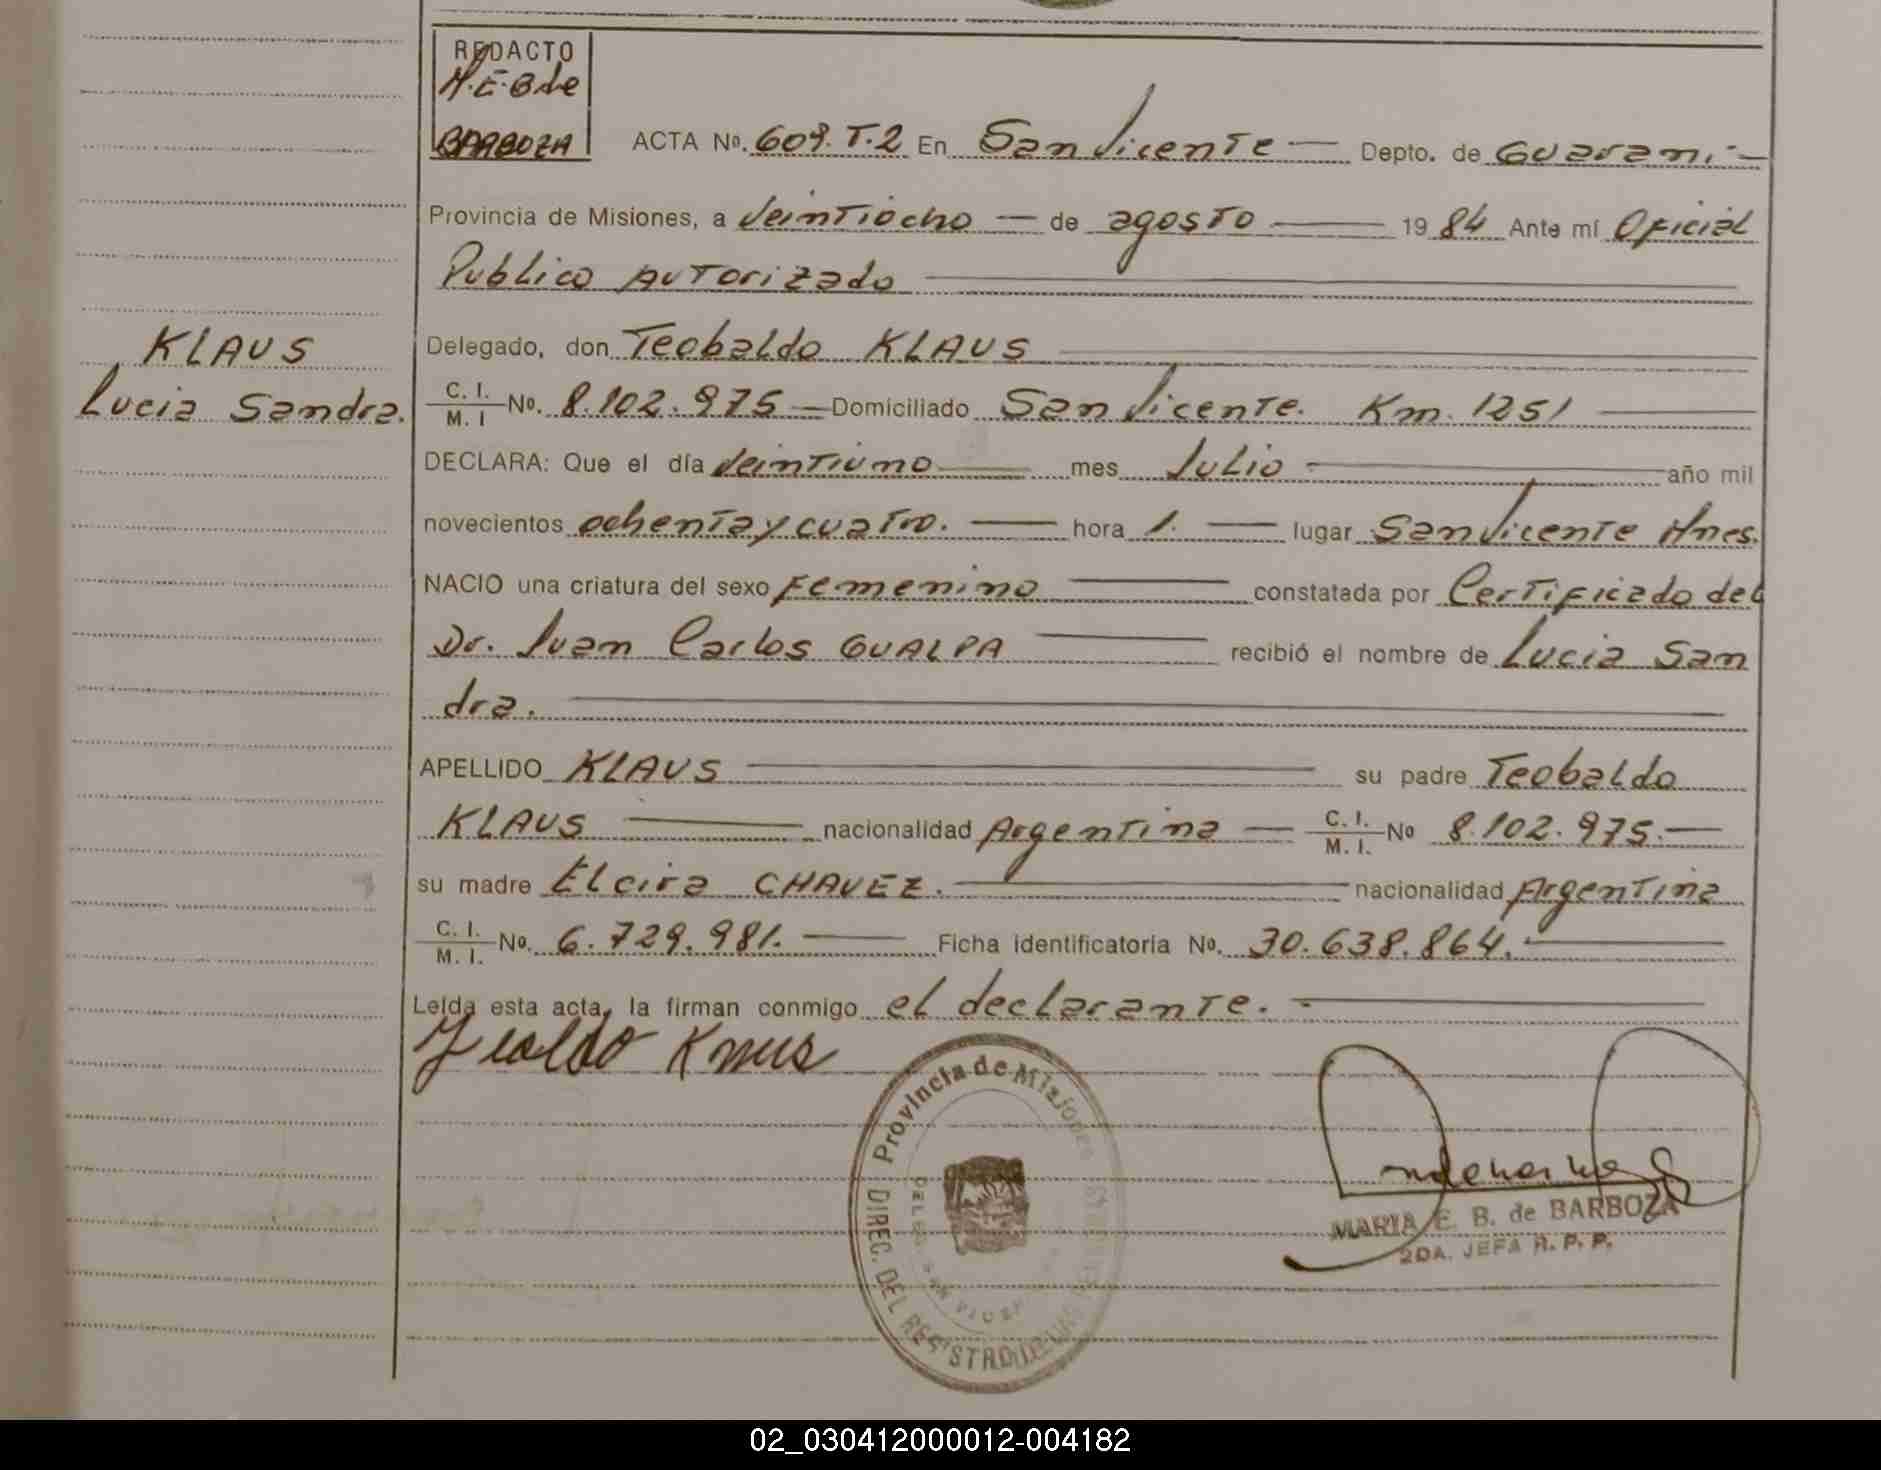 REDACTO
M.E.B de
BARBOZA
ACTA Nº. 609. T.2 En San Vicente Depto. de Guarani
Provincia de Misiones, a Veintiocho de agosto 19 84 Ante mí Oficial
Publico Autorizado
KLAUS
Lucia Sandra.
Delegado, don Teobaldo KLAUS
C. I.
M. I Nº. 8.102.975 Domiciliado San Vicente. Km. 1251
DECLARA: Que el día Veintiuno mes Julio año mil
novecientos ochenta y cuatro. hora 1. lugar San Vicente Mnes.
NACIO una criatura del sexo Femenino constatada por Certificado del
Dr. Juan Carlos GUALPA recibió el nombre de Lucia San
dra.
APELLIDO KLAUS su padre Teobaldo
KLAUS nacionalidad Argentina C. I.
M. I. Nº 8.102.975.
su madre Elcira CHAVEZ. nacionalidad Argentina
C. I.
M. I. Nº. 6.729.981. Ficha identificatoria Nº. 30.638.864.
Leída esta acta, la firman conmigo el declarante.
Provincia de Misiones
DIREC. DEL REGISTRO DE LAS
MARIA E. B. de BARBOZA
2DA. JEFA R. P. P.
02_030412000012-004182